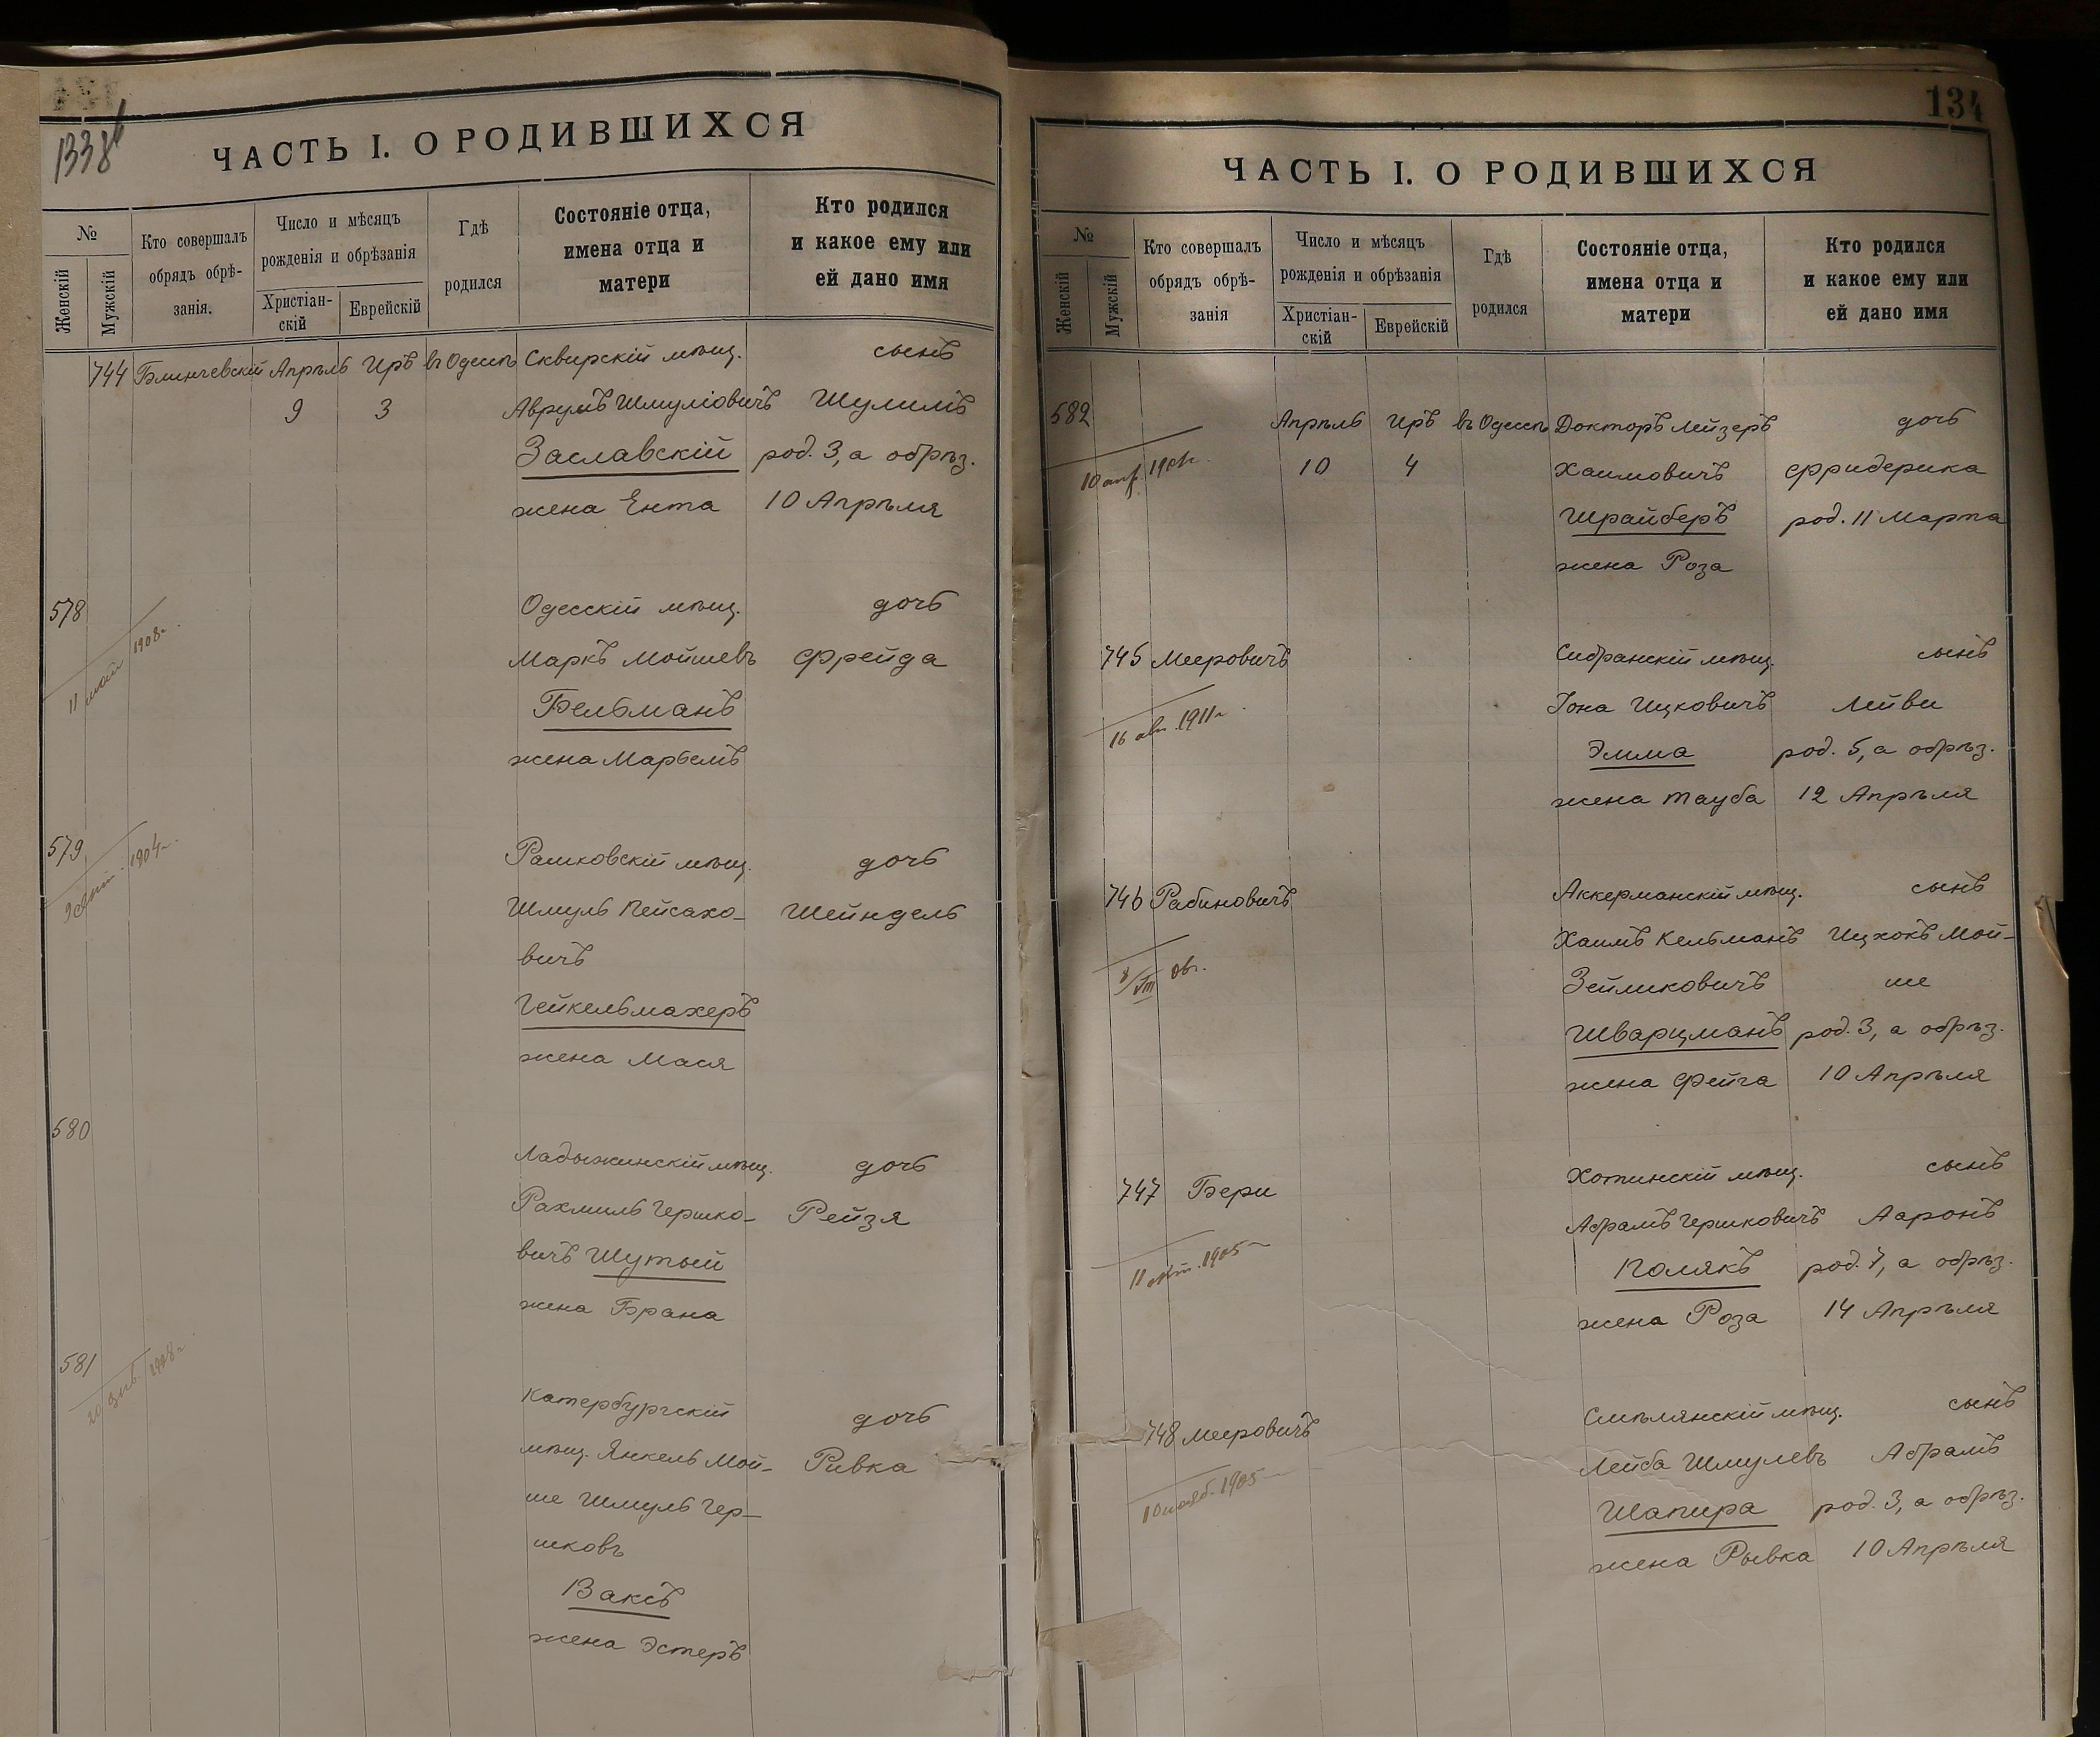 133об
ЧАСТЬ I. О РОДИВШИХСЯ
№
Женскій
Мужскій
Кто совершалъ
обрядъ обрѣ-
занія.
Число и мѣсяцъ
рожденія и обрѣзанія
Христіан-
скій
Еврейскій
Гдѣ
родился
Состояніе отца,
имена отца и
матери
Кто родился
и какое ему или
ей дано имя
744 Блинчевскій Апрѣль Иръ въ Одессѣ Сквирскій мѣщ. сынъ
9 3 Аврумъ Шмуліовичъ Шулимъ
Заславскій род. 3, а обрѣз.
жена Ента 10 Апрѣля
578 Одесскій мѣщ. дочь
11 1908г.
Маркъ Мойшевъ Фрейда
Бельманъ
жена Марьемъ
579 Рашковскій мѣщ. дочь
1904г.
Шмуль Пейсахо- Шейндель
вичъ
Гейкельмахеръ
жена Мася
580
Ладыжинскій мѣщ. дочь
Рахмиль Гершко- Рейзя
вичъ Шутый
жена Брана
581
Катербургскій дочь
мѣщ. Янкель Мой- Ривка
ше Шмуль Гер-
шковъ
Ваксъ
жена Эстеръ
134
ЧАСТЬ I. О РОДИВШИХСЯ
№
Женскій
Мужскій
Кто совершалъ
обрядъ обрѣ-
занія
Число и мѣсяцъ
рожденія и обрѣзанія
Христіан-
скій
Еврейскій
Гдѣ
родился
Состояніе отца,
имена отца и
матери
Кто родился
и какое ему или
ей дано имя
582 Апрѣль Иръ въ Одессѣ Докторъ Лейзеръ дочь
10 4 Хаимовичъ Фридерика
Шрайберъ род. 11 Марта
жена Роза
745 Мееровичъ Сибранскій мѣщ. сынъ
Іона Ицковичъ Лейви
16 авг. 1911г.
Эмма род. 5, а обрѣз.
жена Тауба 12 Апрѣля
746 Рабиновичъ Аккерманскій мѣщ. сынъ
Хаимъ Кельманъ Ицхокъ Мой-
8/VIII 06г. Зейликовичъ ше
Шварцманъ род. 3, а обрѣз.
жена Фейга 10 Апрѣля
747 Бери Хотинскій мѣщ. сынъ
Абрамъ Гершковичъ Ааронъ
11 1905
Полякъ род. 7, а обрѣз.
жена Роза 14 Апрѣля
748 Мееровичъ Смѣлянскій мѣщ. сынъ
Лейба Шмулевъ Абрамъ
10 нояб. 1905
Шапира род. 3, а обрѣз.
жена Рывка 10 Апрѣля